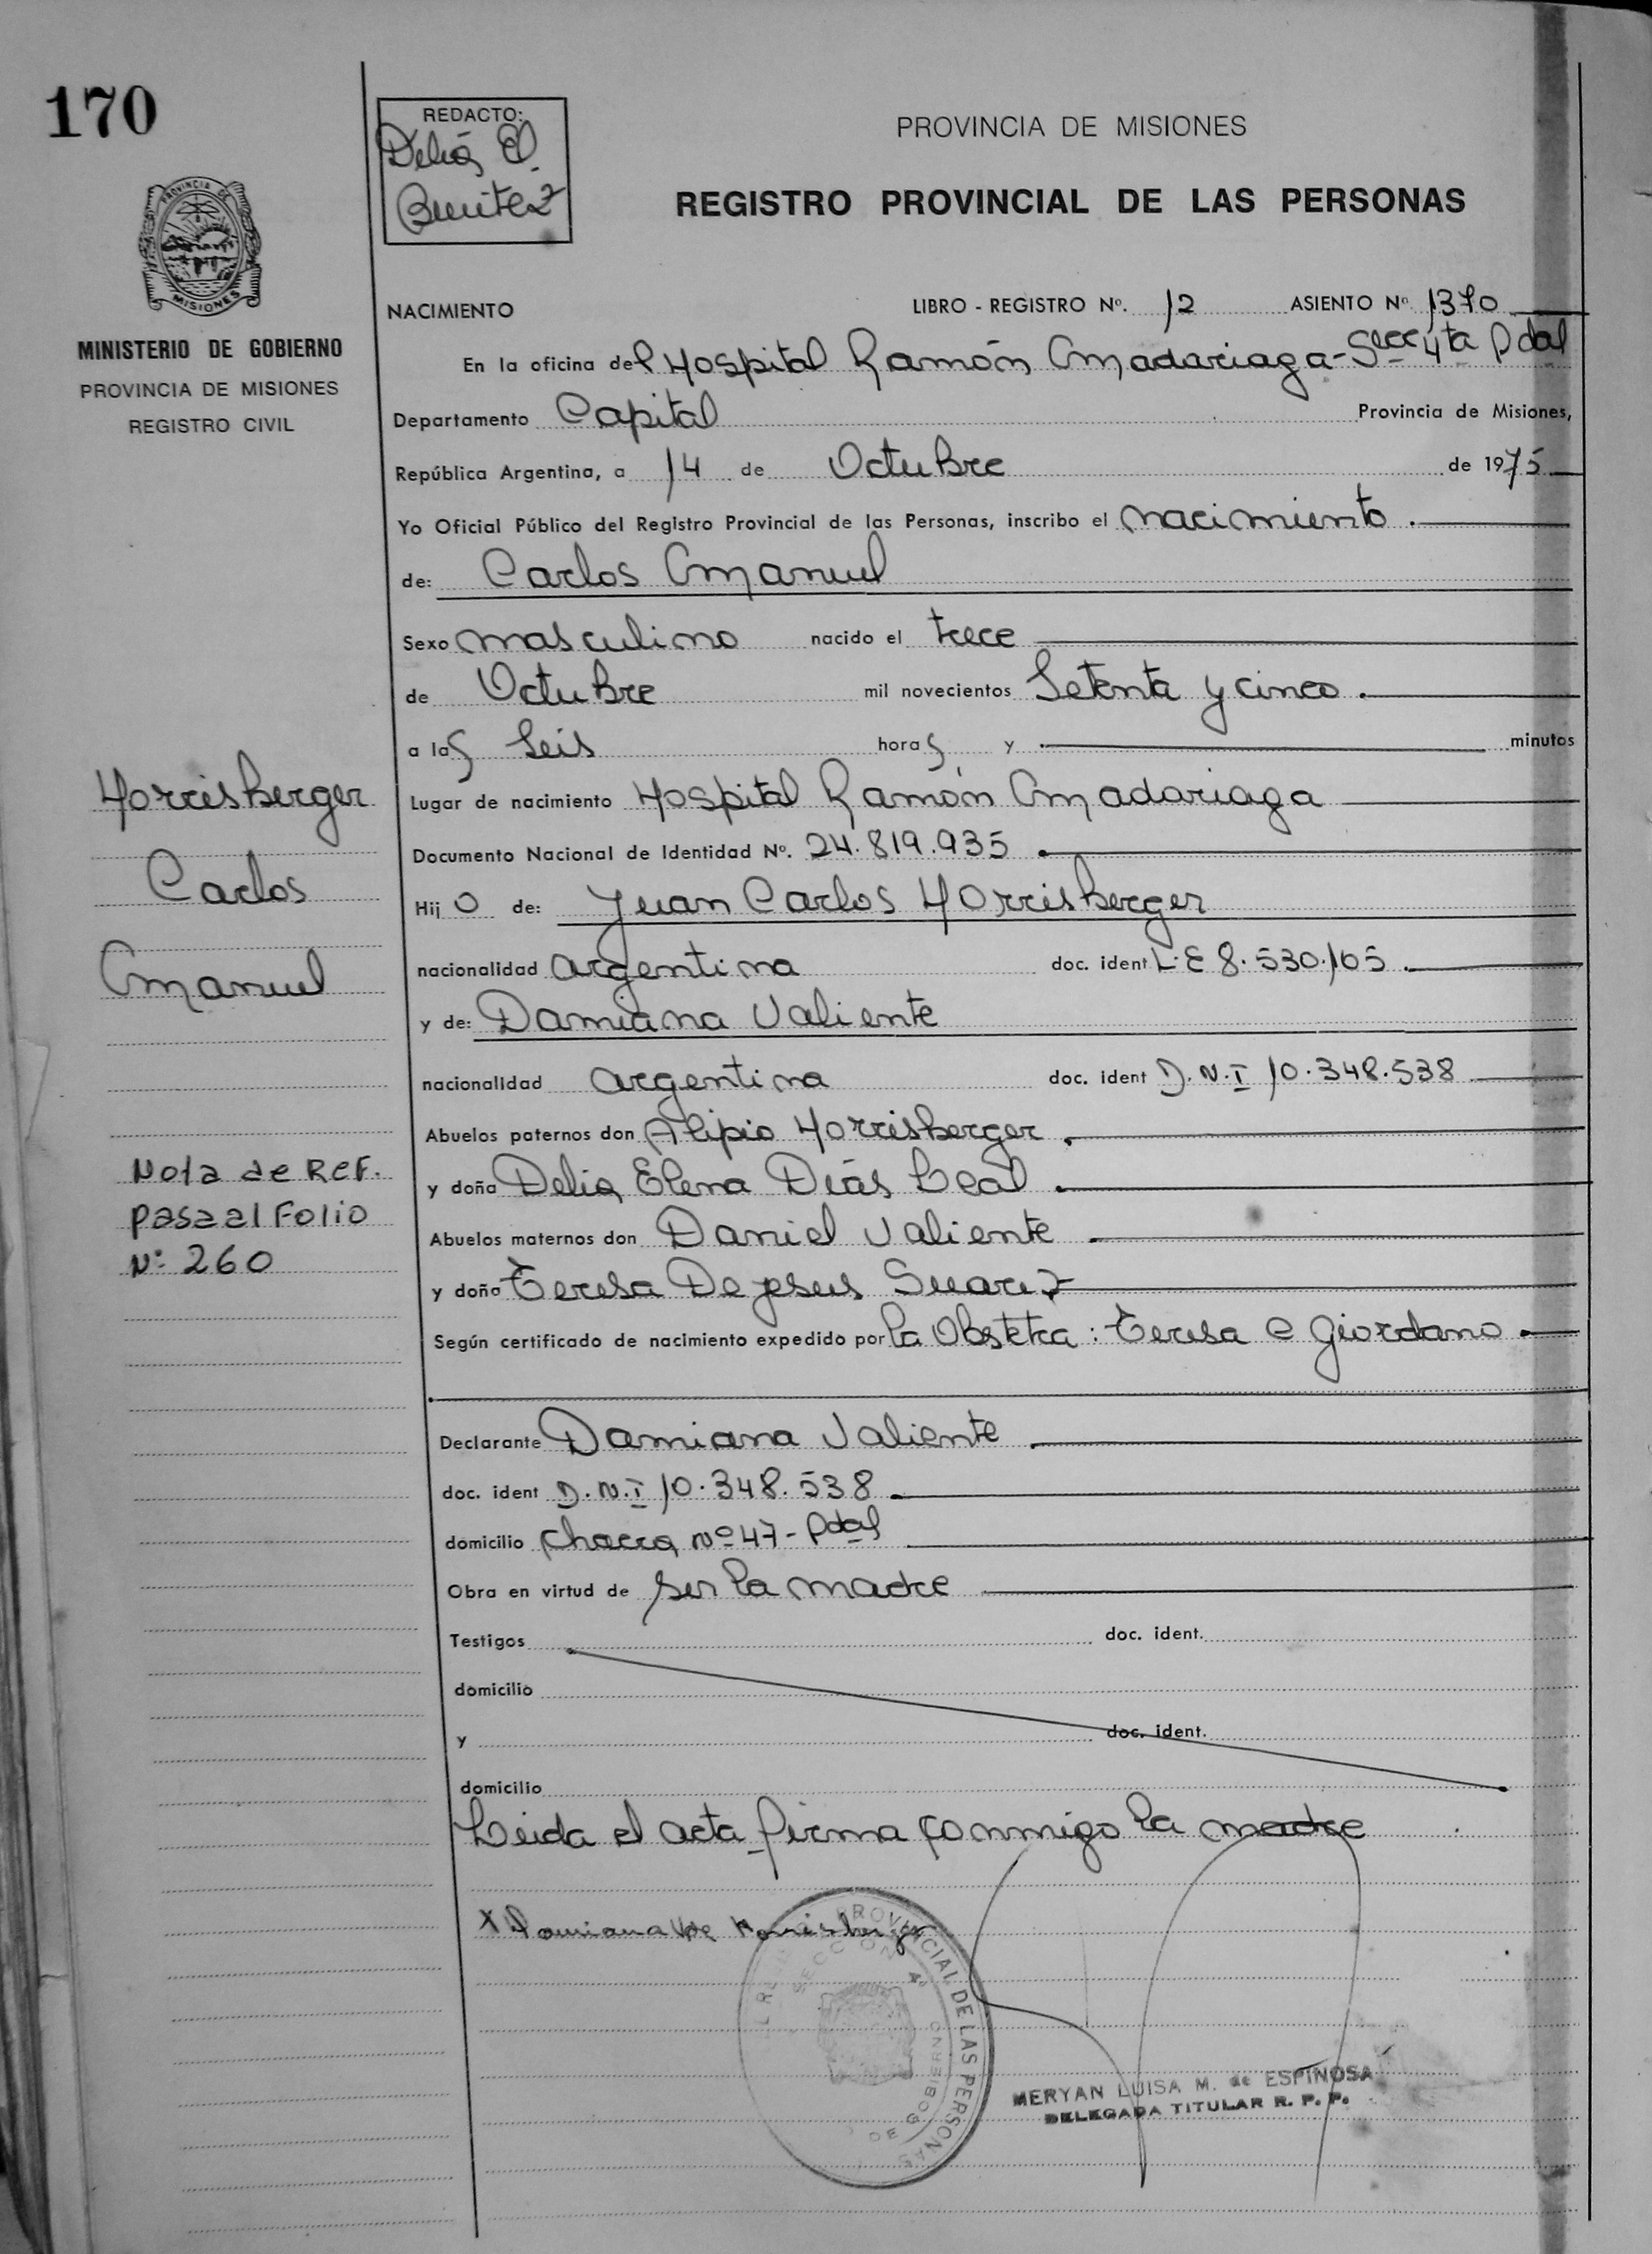 170
REDACTO:
Delia E.
Benitez
PROVINCIA DE MISIONES
REGISTRO PROVINCIAL DE LAS PERSONAS
PROVINCIA DE
MISIONES
MINISTERIO DE GOBIERNO
PROVINCIA DE MISIONES
REGISTRO CIVIL
NACIMIENTO LIBRO - REGISTRO Nº. 12 ASIENTO Nº 1370
En la oficina del Hospital Ramón Madariaga - Secc 4ta Pdal
Departamento Capital Provincia de Misiones,
República Argentina, a 14 de Octubre de 1975
Yo Oficial Público del Registro Provincial de las Personas, inscribo el nacimiento.
de: Carlos Emanuel
Sexo masculino nacido el trece
de Octubre mil novecientos Setenta y cinco.
a las Seis horas y minutos
Lugar de nacimiento Hospital Ramón Madariaga
Documento Nacional de Identidad Nº. 24.819.935
Hijo de: Juan Carlos Horrisberger
nacionalidad argentina doc. ident L.E 8.530.165.
y de: Damiana Valiente
nacionalidad argentina doc. ident D.N.I 10.348.538
Abuelos paternos don Alipio Horrisberger.
y doña Delia Elena Diás Leal.
Abuelos maternos don Daniel Valiente
y doña Teresa De jesus Suarez
Según certificado de nacimiento expedido por la Obstetra: Teresa e Giordano
Declarante Damiana Valiente
doc. ident D.N.I 10.348.538
domicilio Chacra Nº 47 - Pdal
Obra en virtud de ser la madre
Testigos doc. ident.
domicilio
y doc. ident.
domicilio
Leida el acta firma conmigo la madre
Horrisberger
Carlos
Emanuel
Nota de REF.
pasa al Folio
Nº: 260
X Damiana V de Horrisberger
PROVINCIAL DE LAS PERSONAS
SECCION 4º
DE GOBIERNO
MERYAN LUISA M. de ESPINOSA
DELEGADA TITULAR R. P. P.